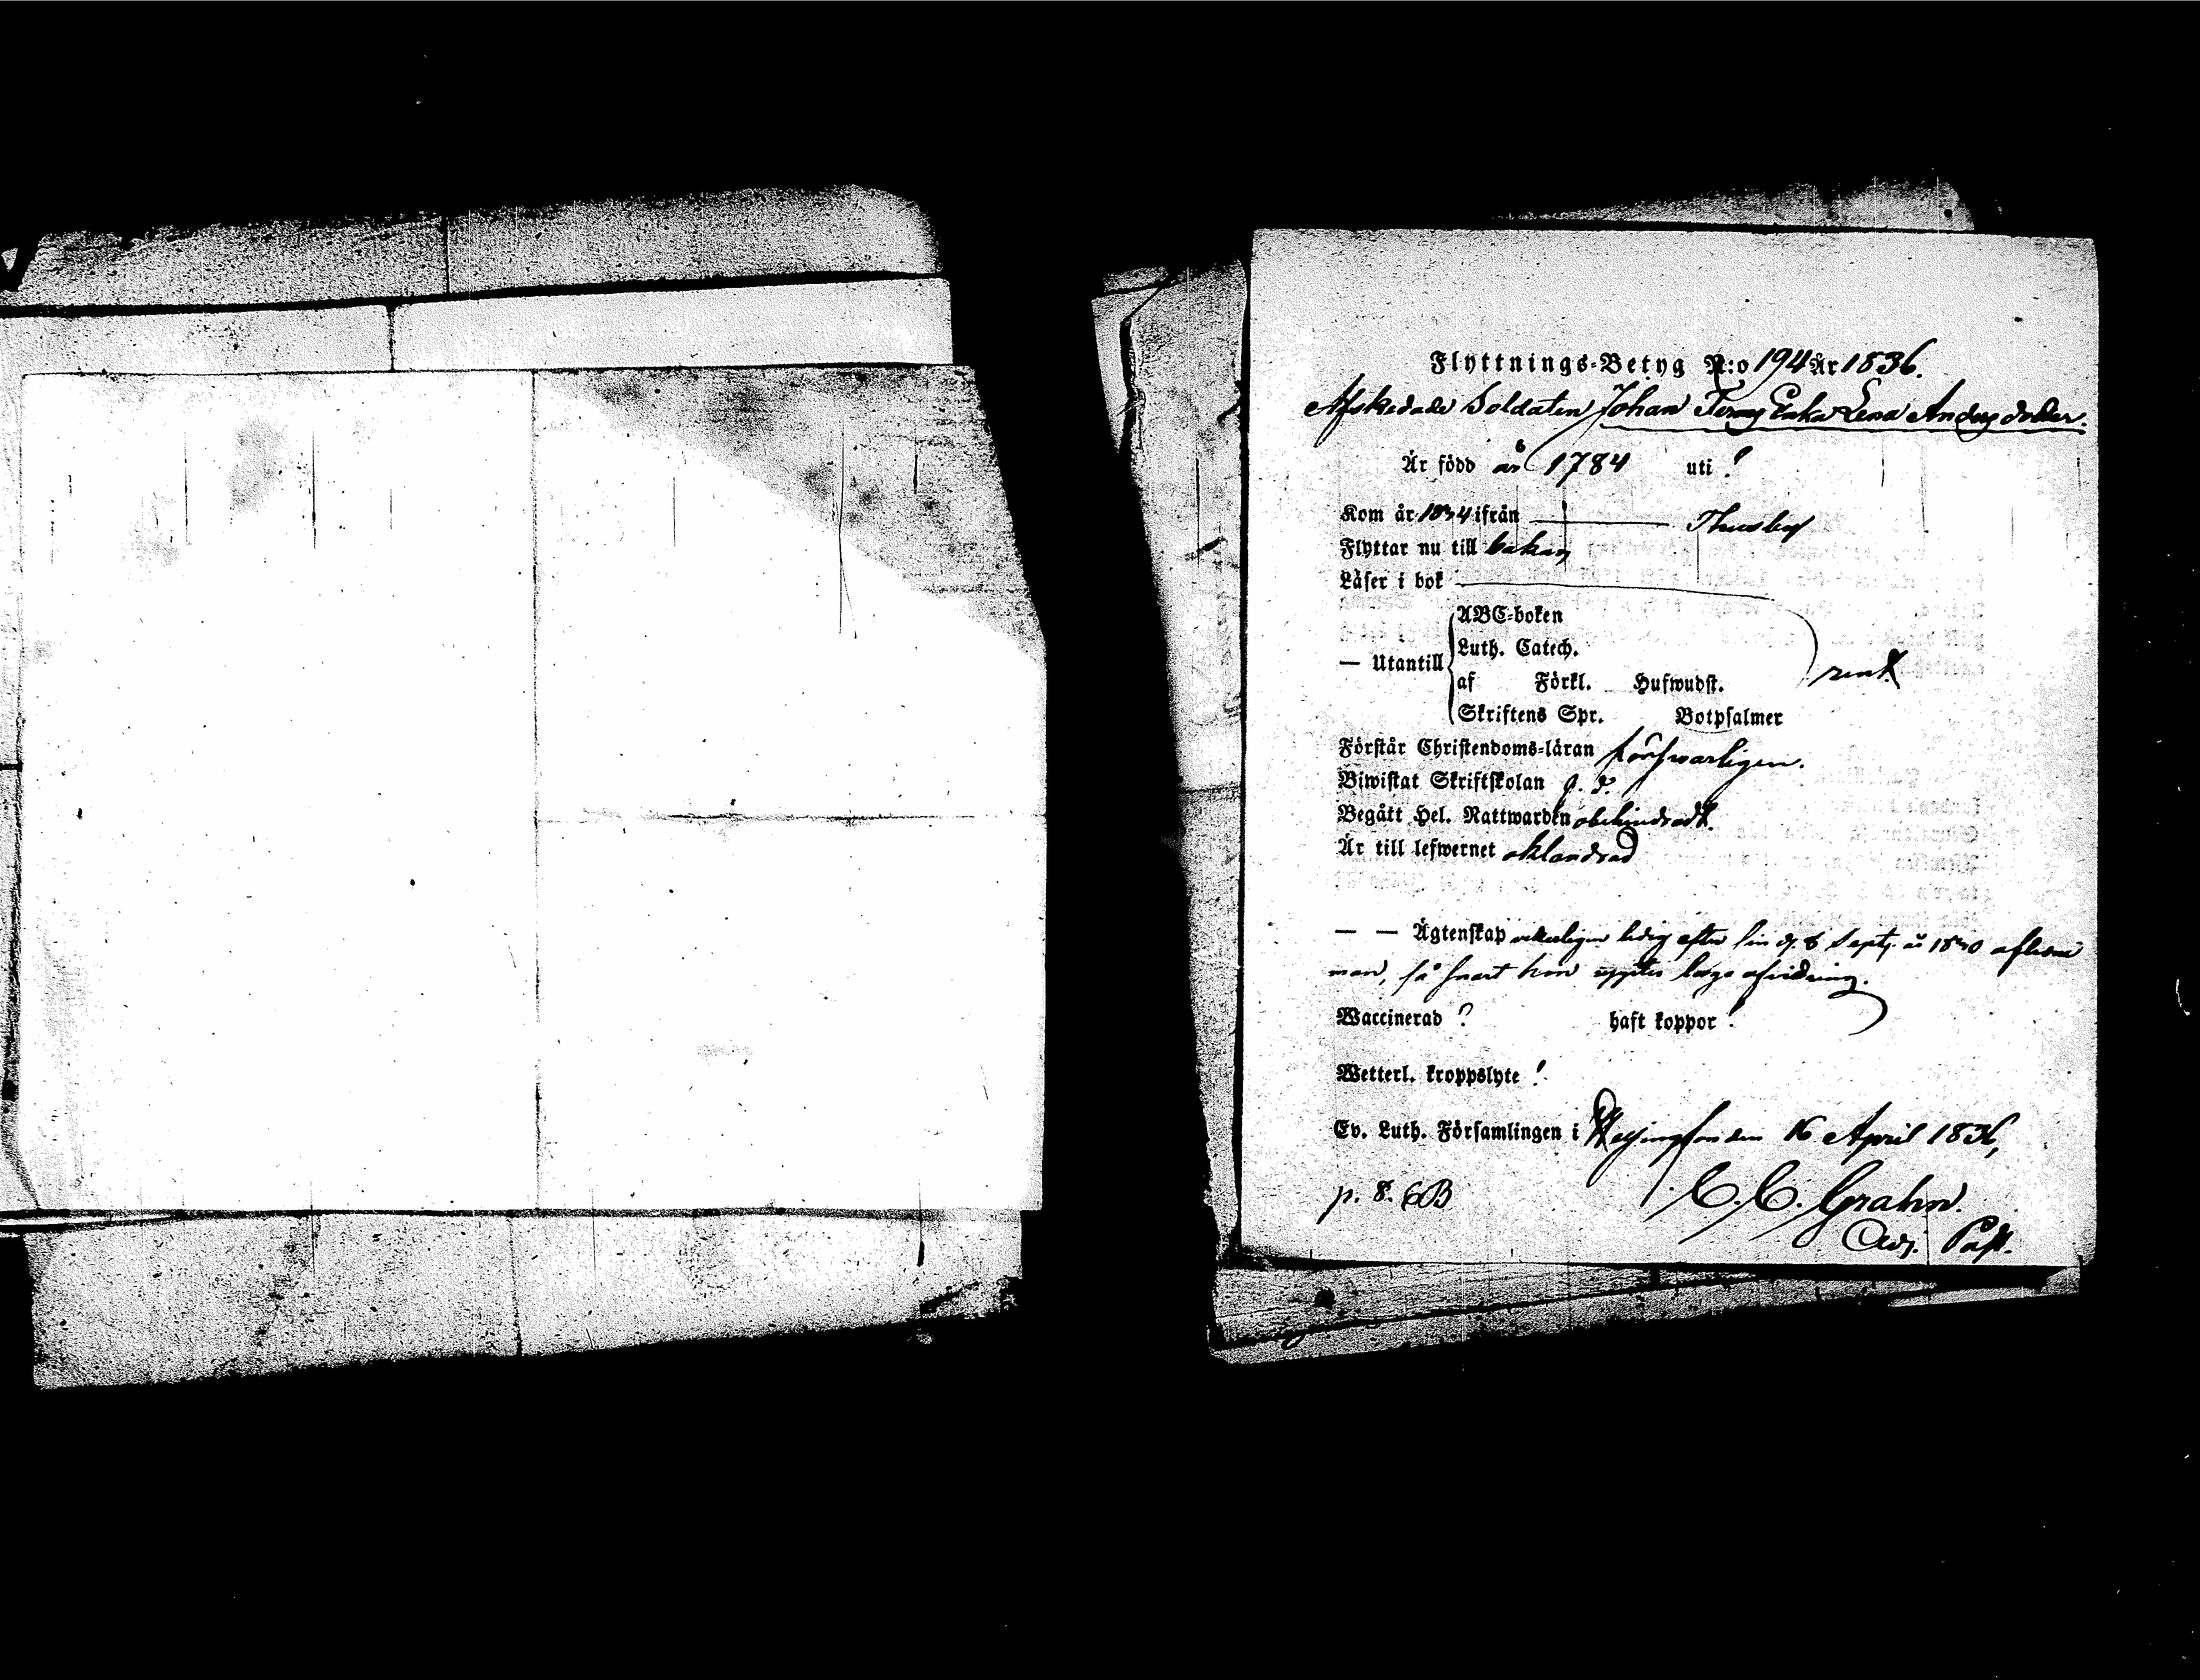 Flyttnings-Betyg N:o 194 År 1836.
Afskedade Soldaten Johan Enka Lena Anders dotter.
Är född år 1784 uti ?
Kom år 1834 ifrån — Thusby
Flyttar nu till
Läser i bok
ABC-boken
Luth. Catech.
— Utantill
af Förkl. Hufwudst.
rent
Skriftens Spr. Botpsalmer
Förstår Christendoms-läran försvarligen.
Biwistat Skriftskolan
Begått Hel. Nattwarden obehindradt.
Är till lefwernet oklandrad
— — Ägtenskap ledig efter sin d. 8 Sept. år aflidne
man, så snart hon afvidring.
Waccinerad ? haft koppor !
Wetterl. kroppslyte !
Ev. Luth. Församlingen i Helsingfors den 16 April 1836,
p. 8. C. C. Grahn.
Adj. Past.